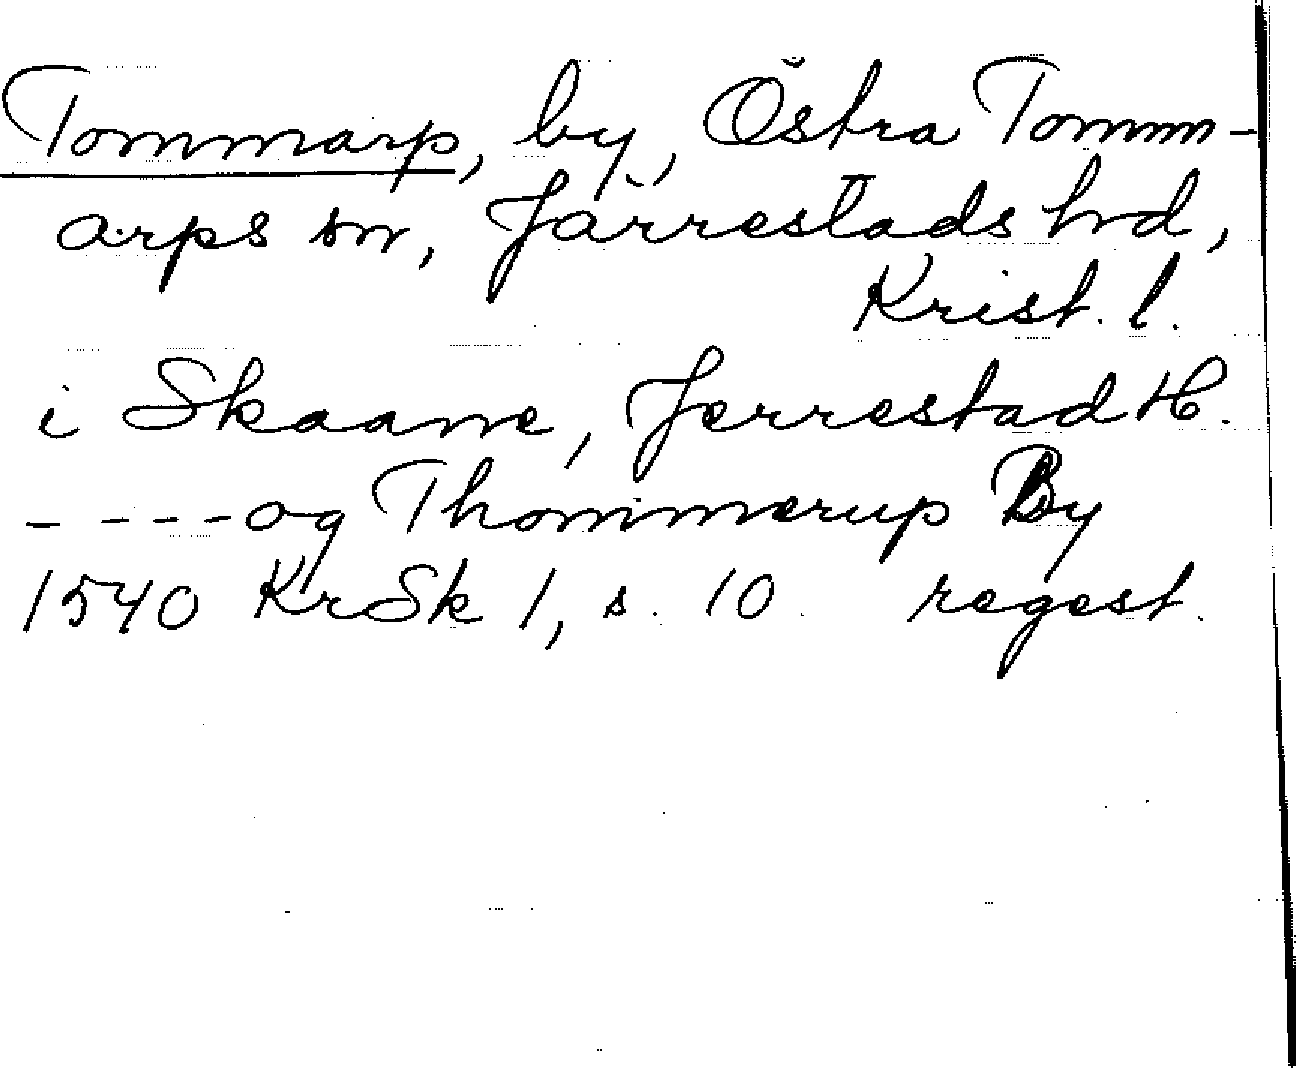 Tommarp, by, Östra Tomm-
arps sn, Järrestads hrd,
Krist. l.
i Skaane, Jerrestad H.
- - - - og Thommerup By
1540 KrSk 1, s. 10. regest.